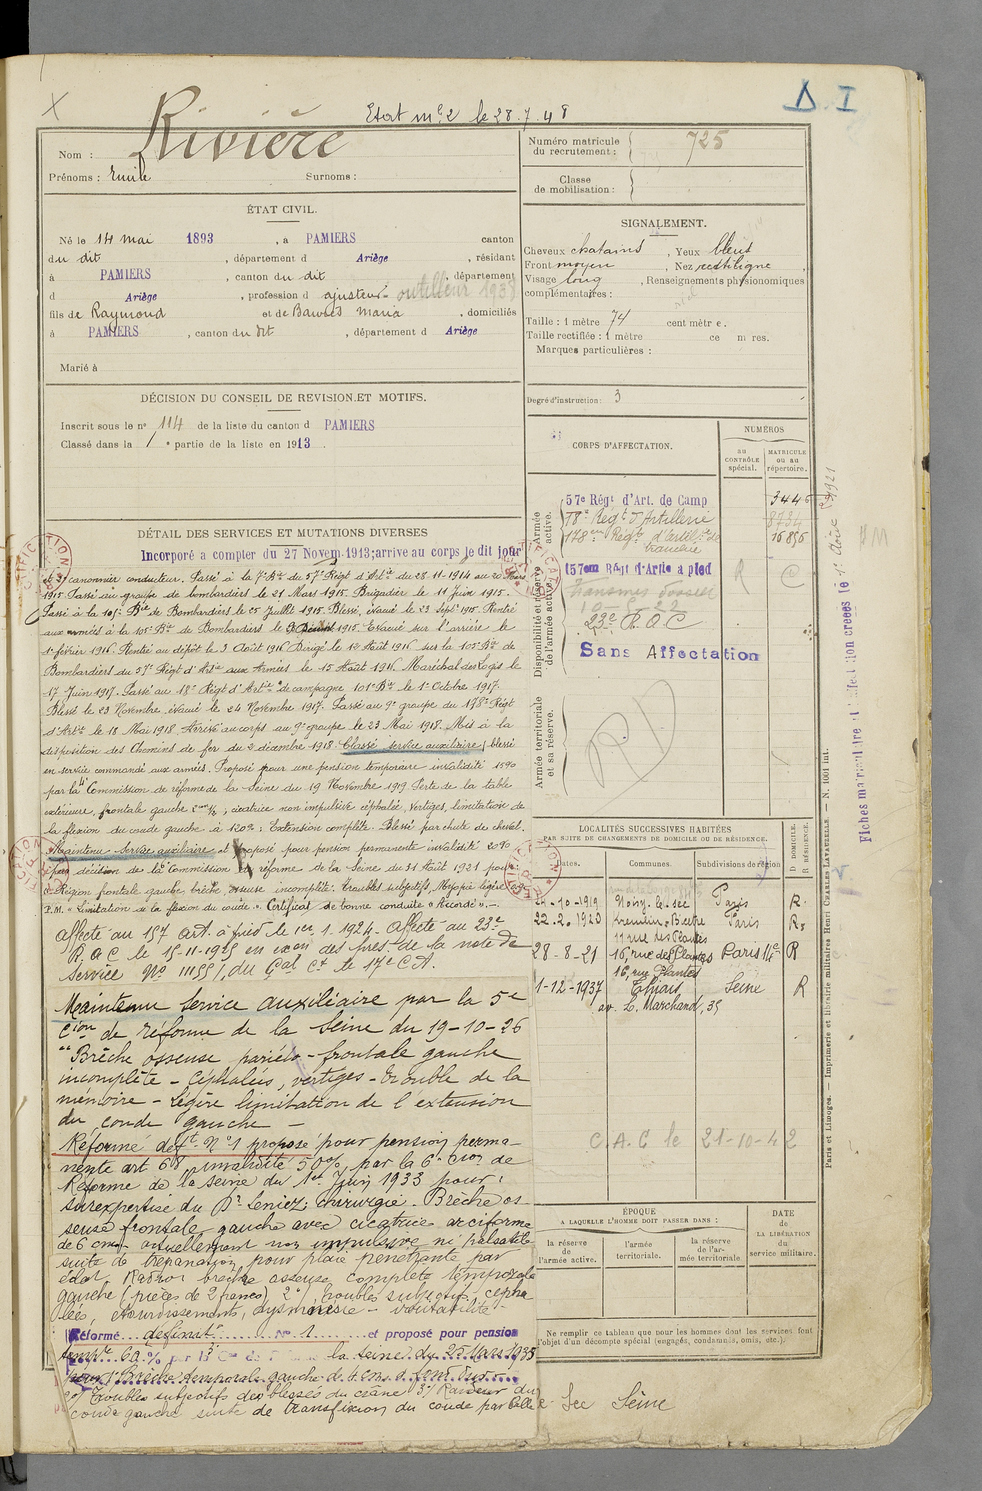 Etat mle 2 le 28.7.48
D. I
Rivière
Nom :
Prénoms : Emile Surnoms :
Numéro matricule
du recrutement : 725
Classe
de mobilisation :
ÉTAT CIVIL.
Né le 14 mai 1893, à PAMIERS canton
du dit, département d Ariège, résidant
à PAMIERS, canton du dit, département
d Ariège, profession d ajusteur - outilleur 1938
fils de Raymond et de Maria, domiciliés
à PAMIERS, canton du dit, département d Ariège
Marié à
SIGNALEMENT.
Cheveux chatains, Yeux bleus
Front moyen, Nez rectiligne
Visage long, Renseignements physionomiques
complémentaires :
Taille : 1 mètre 74 centimètre.
Taille rectifiée : 1 mètre ce m res.
Marques particulières :
Degré d'instruction : 3
DÉCISION DU CONSEIL DE REVISION ET MOTIFS.
Inscrit sous le n° 114 de la liste du canton d PAMIERS
Classé dans la 1e partie de la liste en 1913
CORPS D'AFFECTATION.
NUMÉROS
au
CONTRÔLE
spécial.
MATRICULE
ou au
répertoire.
Armée
active.
57e Régt d'Art. de Camp 3446
18e Régt d'Artillerie
178e Régt d'artie de 16856
tranchée
Disponibilité et réserve
de l'armée active.
157em Régt d'Artie a pied R
23e R A C
Sans Affectation
Armée territoriale
et sa réserve.
DÉTAIL DES SERVICES ET MUTATIONS DIVERSES
Incorporé a compter du 27 Novem. 1913; arrive au corps le dit jour
et 2e canonnier conducteur. Passé à la 7e Bie du 57e Régt d'Artie du 28-11-1914 au 20 Mars
1915. Passé au groupe de bombardiers le 21 Mars 1915. Brigadier le 11 Juin 1915.
Passé à la 105e Bie de Bombardiers le 25 Juillet 1915. Blessé, évacué le 23 Septe 1915. Rentré
aux armées à la 105e Bie de Bombardiers le 1915. Evacué sur l'arrière le
1e février 1916. Rentré au dépôt le 3 Août 1916. Dirigé le 12 Août 1916 sur la 105e Bie de
Bombardiers du 57e Régt d'Artie aux Armées le 15 Août 1916. Maréchal des Logis le
17 Juin 1917. Passé au 18e Régt d'Artie de campagne 101e Bie le 1e Octobre 1917.
Blessé le 23 Novembre, évacué le 24 Novembre 1917. Passé au 9e groupe du 178e Régt
d'Artie le 18 Mai 1918. Arrivé au corps au 9e groupe le 23 Mai 1918. Mis à la
disposition des Chemins de fer du 2 décembre 1918. Classé service auxiliaire, blessé
en service commandé aux armées. Proposé pour une pension temporaire invalidité 15%
par la Commission de réforme de la Seine du 19 Novembre 1919. Perte de la table
extérieure, frontale gauche, cicatrice non impulsive, céphalée, vertiges, limitation de
la flexion du coude gauche à 120°; Extension complète. Blessé par chute de cheval.
Maintenu service auxiliaire et proposé pour pension permanente invalidité 20%
par décision de la Commission de réforme de la Seine du 31 Août 1921 pour:
Région frontale gauche brèche osseuse incomplète. troubles subjectifs, Myopie légère
P.M. « Limitation de la flexion du coude. » Certificat de bonne conduite « Accordé ».-
affecté au 157 Art. à pied le 1er 1. 1924. Affecté au 23e
R. A. C le 15-11-1925 en exon des pres. de la note de
service No 11155/1 du Gal Ct le 17e C.A.
Maintenu Service auxiliaire par la 5e
Cion de réforme de la Seine du 19-10-26
"Brèche osseuse pariéto-frontale gauche
incomplète - Céphalées, vertiges - trouble de la
mémoire - Légère limitation de l'extension
du coude gauche -
Réformé deft N°1 proposé pour pension perma-
nente art 68, invalidité 50%, par la 6e Cion de
Réforme de la Seine du 1er Juin 1933 pour:
surexpertise du Dr Leniez, chirurgie. Brèche os-
seuse frontale gauche avec cicatrice arciforme
de 6 cms - actuellement non impulsive ni pulsatile
suite de trépanation pour plaie pénétrante par
éclat. Radio: brèche osseuse complète temporale
gauche (pièces de 2 francs) 2°/ troubles subjectifs, cépha-
lées, étourdissements, dysmnésie - voutabilité -
Réformé définitt N° 1 et proposé pour pension
tempre 60 % par la la Seine du 25 Mars 1938
pour 1° Brèche temporale gauche de 4 cms
2°/ Troubles subjectifs des blessés du crâne 3°/ Raideur du
coude gauche suite de transfixion du coude par balle
LOCALITÉS SUCCESSIVES HABITÉES
PAR SUITE DE CHANGEMENTS DE DOMICILE OU DE RÉSIDENCE.
Dates. Communes. Subdivisions de région D DOMICILE. R RÉSIDENCE.
29-10-1919 Noisy-le-sec Paris R.
22.2.1920 Kremlin-Bicêtre Paris R.
11 rue des Plantes
28-8-21 16, rue des Plantes Paris 14e R
16, rue Plantes
1-12-1937 Thiais Seine R
av. L. Marchand, 35
C. A. C le 21-10-42
ÉPOQUE
A LAQUELLE L'HOMME DOIT PASSER DANS :
la réserve
de
l'armée active.
l'armée
territoriale.
la réserve
de l'ar-
mée territoriale
DATE
de
LA LIBÉRATION
du
service militaire.
Ne remplir ce tableau que pour les hommes dont les services font
l'objet d'un décompte spécial (engagés, condamnés, omis, etc.).
Sec Seine
Paris et Limoges. — Imprimerie et librairie militaires Henri CHARLES-LAVAUZELLE. — N. 1001 int.
Fiches matriculaire et d'affectation créées le 1e Août 1921